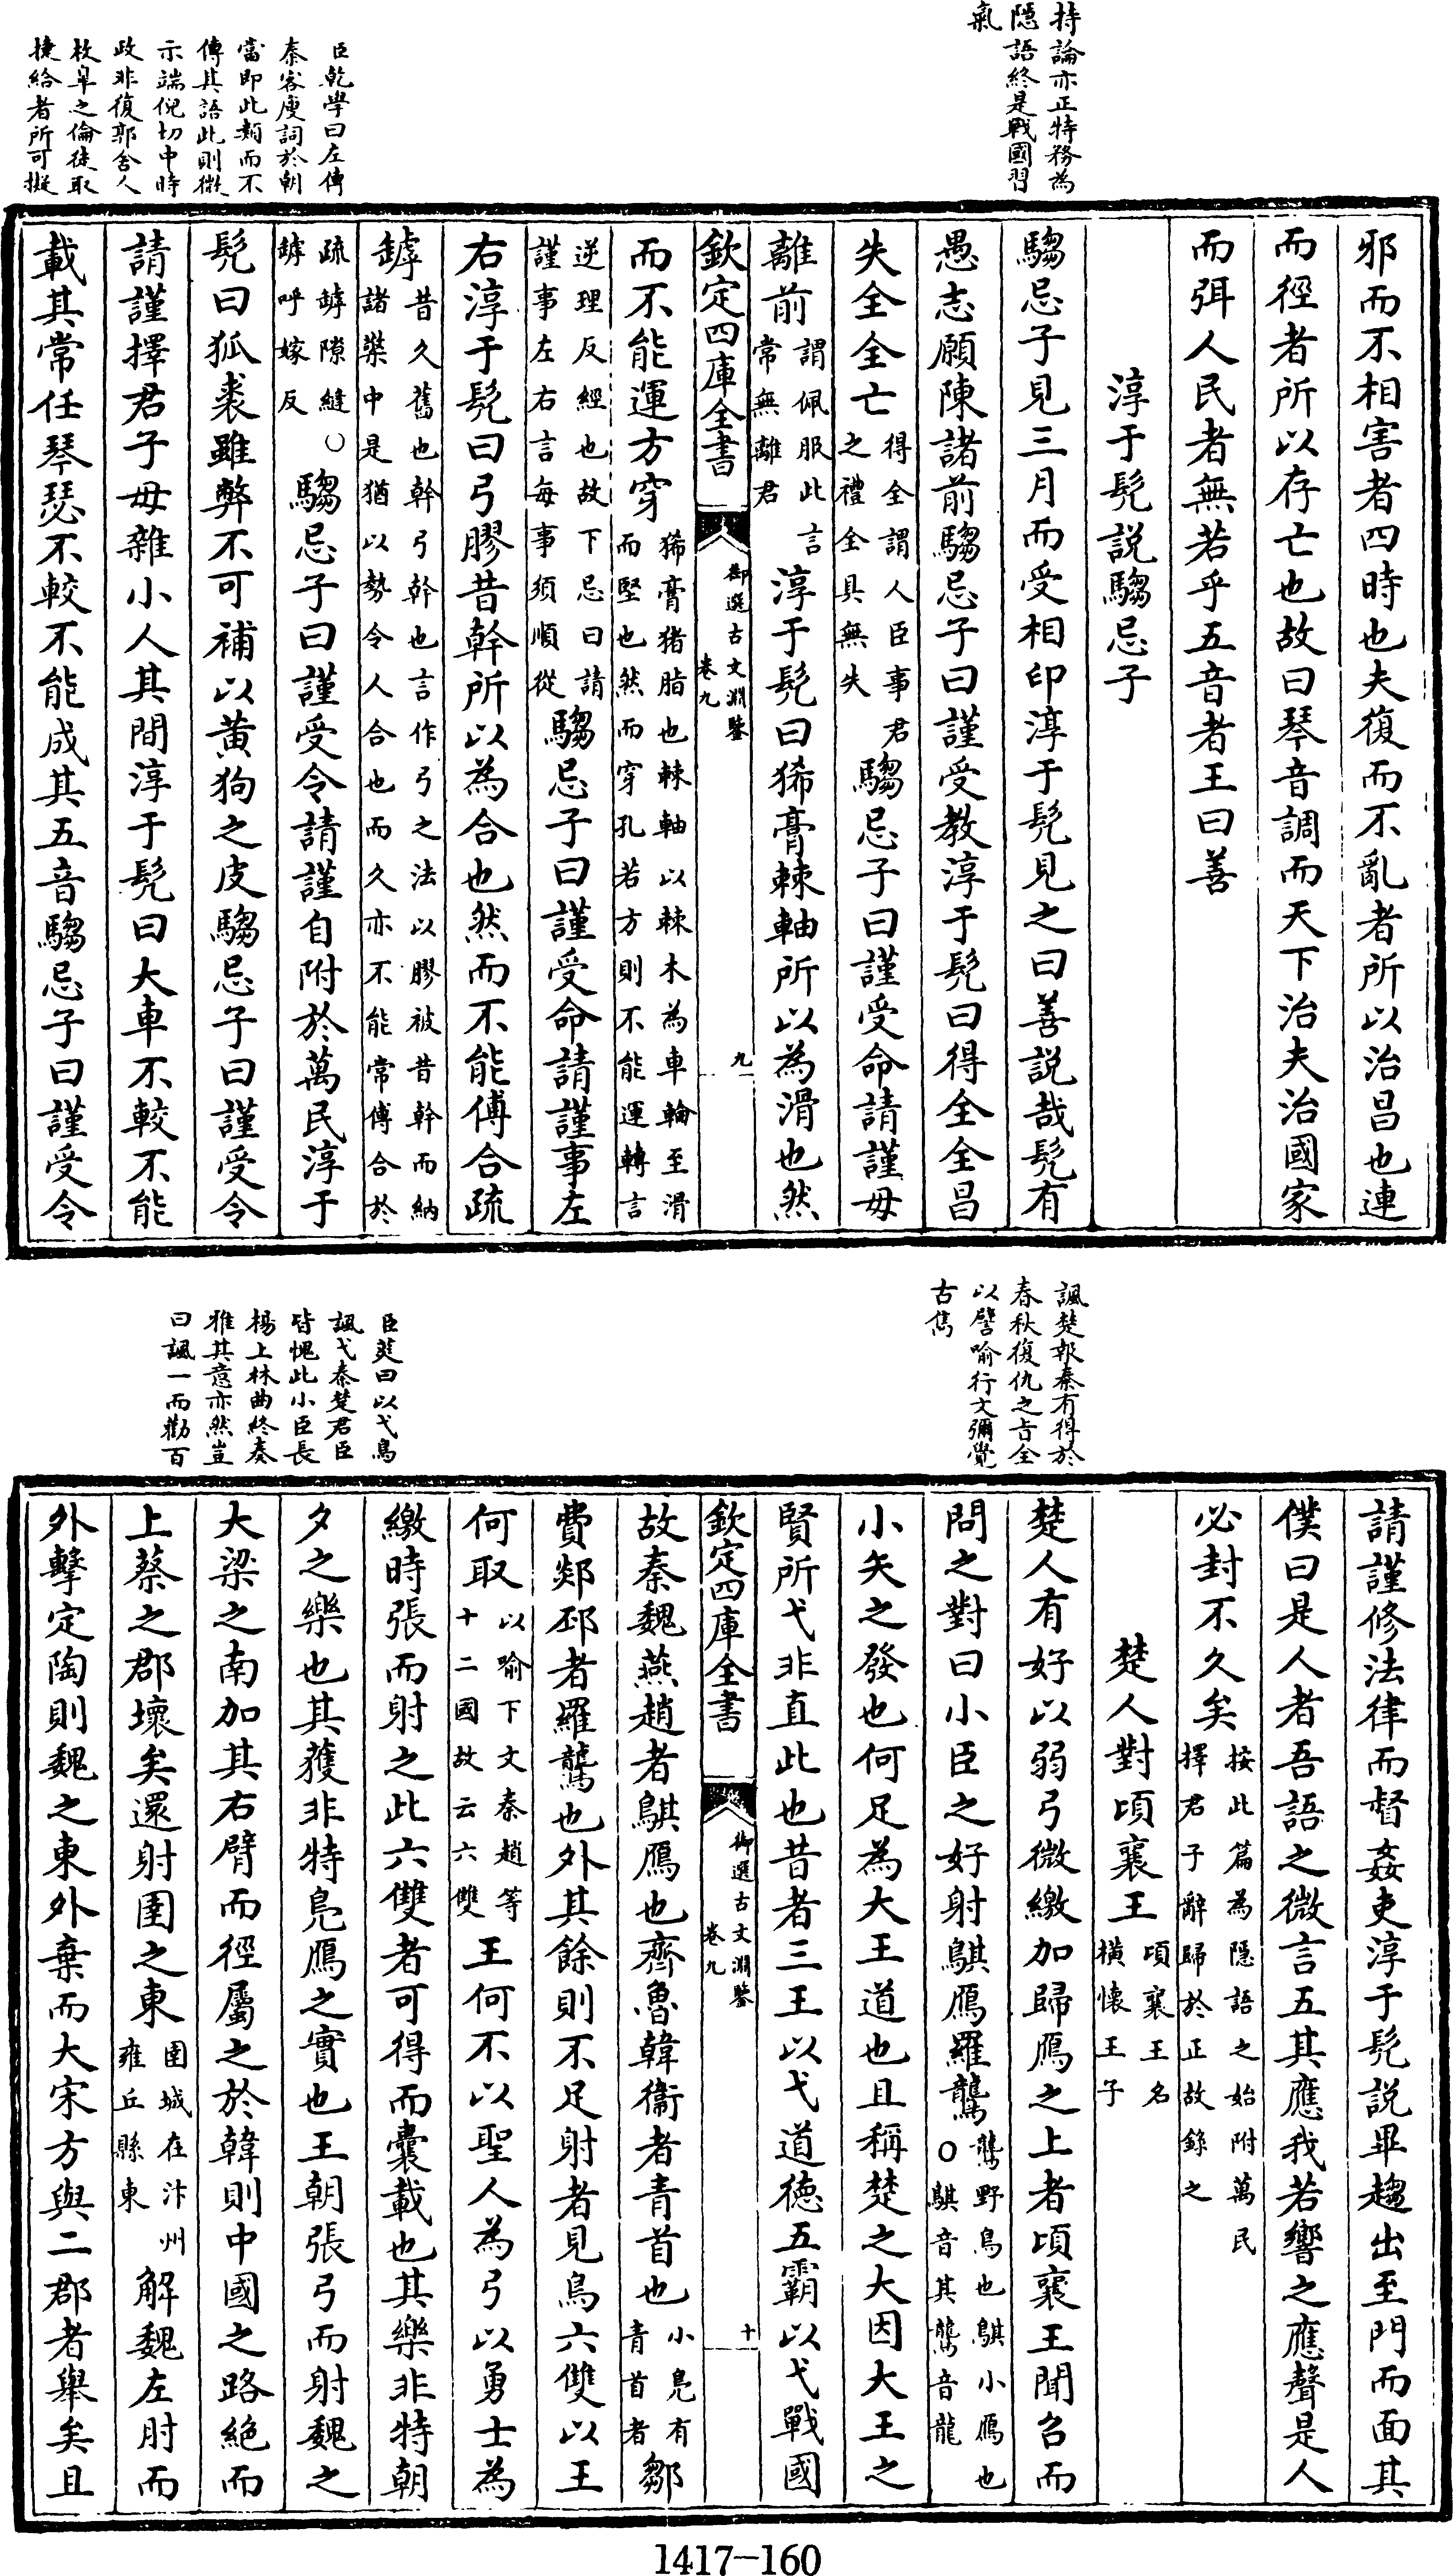 持論亦正特務為
隠語終是戰國習
氣
臣乾學曰左傳
秦客廋詞於朝
當即此類而不
傳其語此則微
示端倪切中時
政非復郭舍人
枚臯之倫徒取
捷給者所可擬
邪而不相害者四時也夫復而不亂者所以治昌也連
而徑者所以存亡也故曰琴音調而天下治夫治國家
而弭人民者無若乎五音者王曰善
淳于髡説騶忌子
騶忌子見三月而受相印淳于髡見之曰善説哉髡有
愚志願陳諸前騶忌子曰謹受教淳于髡曰得全全昌
失全全亡得全謂人臣事君之禮全具無失騶忌子曰謹受命請謹毋
離前謂佩服此言常無離君淳于髡曰狶膏棘軸所以為滑也然
欽定四庫全書 御選古文淵鑒卷九 九
而不能運方穿狶膏猪脂也棘軸以棘木為車輪至滑而堅也然而穿孔若方則不能運轉言
逆理反經也故下忌曰請謹事左右言每事須順從騶忌子曰謹受命請謹事左
右淳于髡曰弓膠昔幹所以為合也然而不能傅合疏
罅昔久舊也幹弓幹也言作弓之法以膠被昔幹而納諸檠中是猶以勢令人合也而久亦不能常傅合於
疏罅隙縫罅呼嫁反○騶忌子曰謹受令請謹自附於萬民淳于
髡曰狐裘雖弊不可補以黄狗之皮騶忌子曰謹受令
請謹擇君子毋雜小人其間淳于髡曰大車不較不能
載其常任琴瑟不較不能成其五音騶忌子曰謹受令
諷楚報秦有得於
春秋復仇之旨全
以譬喻行文彌覺
古雋
臣英曰以弋鳥
諷弋秦楚君臣
皆愧此小臣長
楊上林曲終奏
雅其意亦然豈
曰諷一而勸百
請謹修法律而督姦吏淳于髡説畢趨出至門而面其
僕曰是人者吾語之微言五其應我若響之應聲是人
必封不久矣按此篇為隠語之始附萬民擇君子辭歸於正故錄之
楚人對頃襄王頃襄王名橫懷王子
楚人有好以弱弓微繳加歸鴈之上者頃襄王聞召而
問之對曰小臣之好射鶀鴈羅鸗鸗野鳥也鶀小鴈也○鶀音其鸗音龍
小矢之發也何足為大王道也且稱楚之大因大王之
賢所弋非直此也昔者三王以弋道徳五霸以弋戰國
欽定四庫全書 御選古文淵鑒卷九 十
故秦魏燕趙者鶀鴈也齊魯韓衞者青首也小鳧有青首者鄒
費郯邳者羅鸗也外其餘則不足射者見鳥六雙以王
何取以喻下文秦趙等十二國故云六雙王何不以聖人為弓以勇士為
繳時張而射之此六雙者可得而囊載也其樂非特朝
夕之樂也其獲非特鳧鴈之實也王朝張弓而射魏之
大梁之南加其右臂而徑屬之於韓則中國之路絶而
上蔡之郡壞矣還射圉之東圉城在汴州雍丘縣東解魏左肘而
外擊定陶則魏之東外棄而大宋方與二郡者舉矣且
1417-160